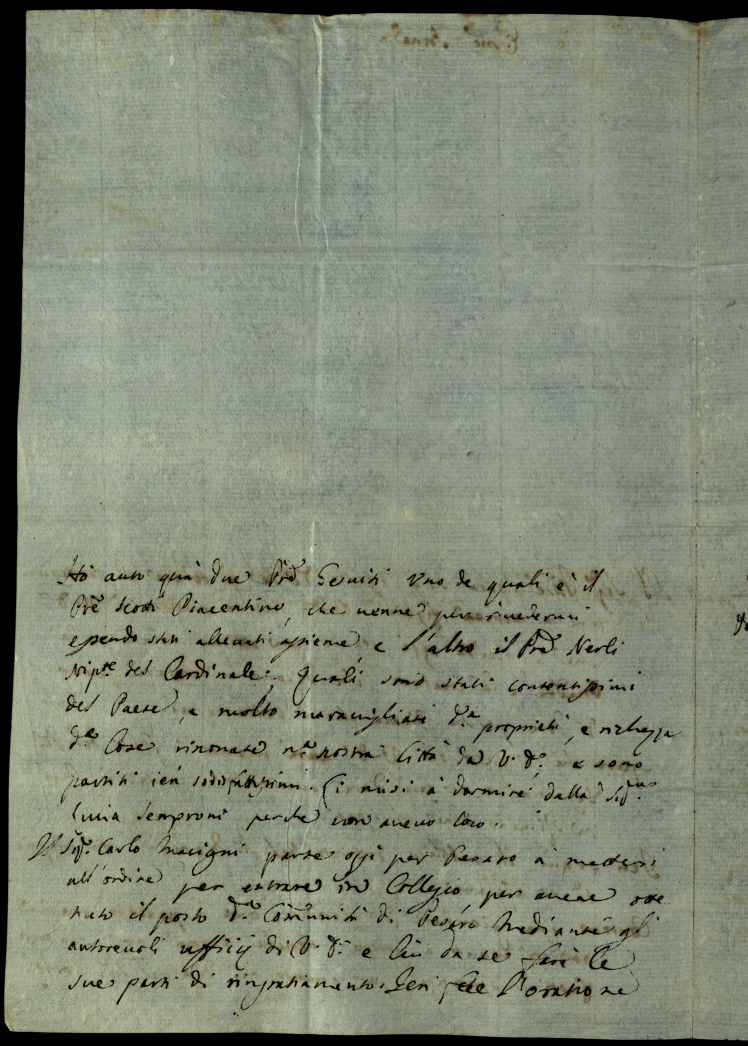 Hò auto quà due Prd Gesuiti Uno de quali è il
Pre Scotti Piacentino, che venne per rivedermi
essendo stati allevati assieme, e l'altro il Pre Nerli
Nipte del Cardinale; Quali sono stati contentissimi
del Paese, e molto maravigliati da proprietà, e richezza
de Cose rinonate na nostra Città da V. Sa. e sono
partiti ieri sodisfattissimi. Ci misi à dormire dalla Sigra
Livia Semproni perche non avevo loco.
Il Sigr. Carlo Macigni parte oggi per Pesaro à mettersi
all'ordine per entrare in Collegio per avere otte
nuto il posto da Comunità di Pesaro Mediante gl
autorevoli ufficij di V. Sa. e da se farà le
sue parti di ringratiamento. Ieri fece l'oratione